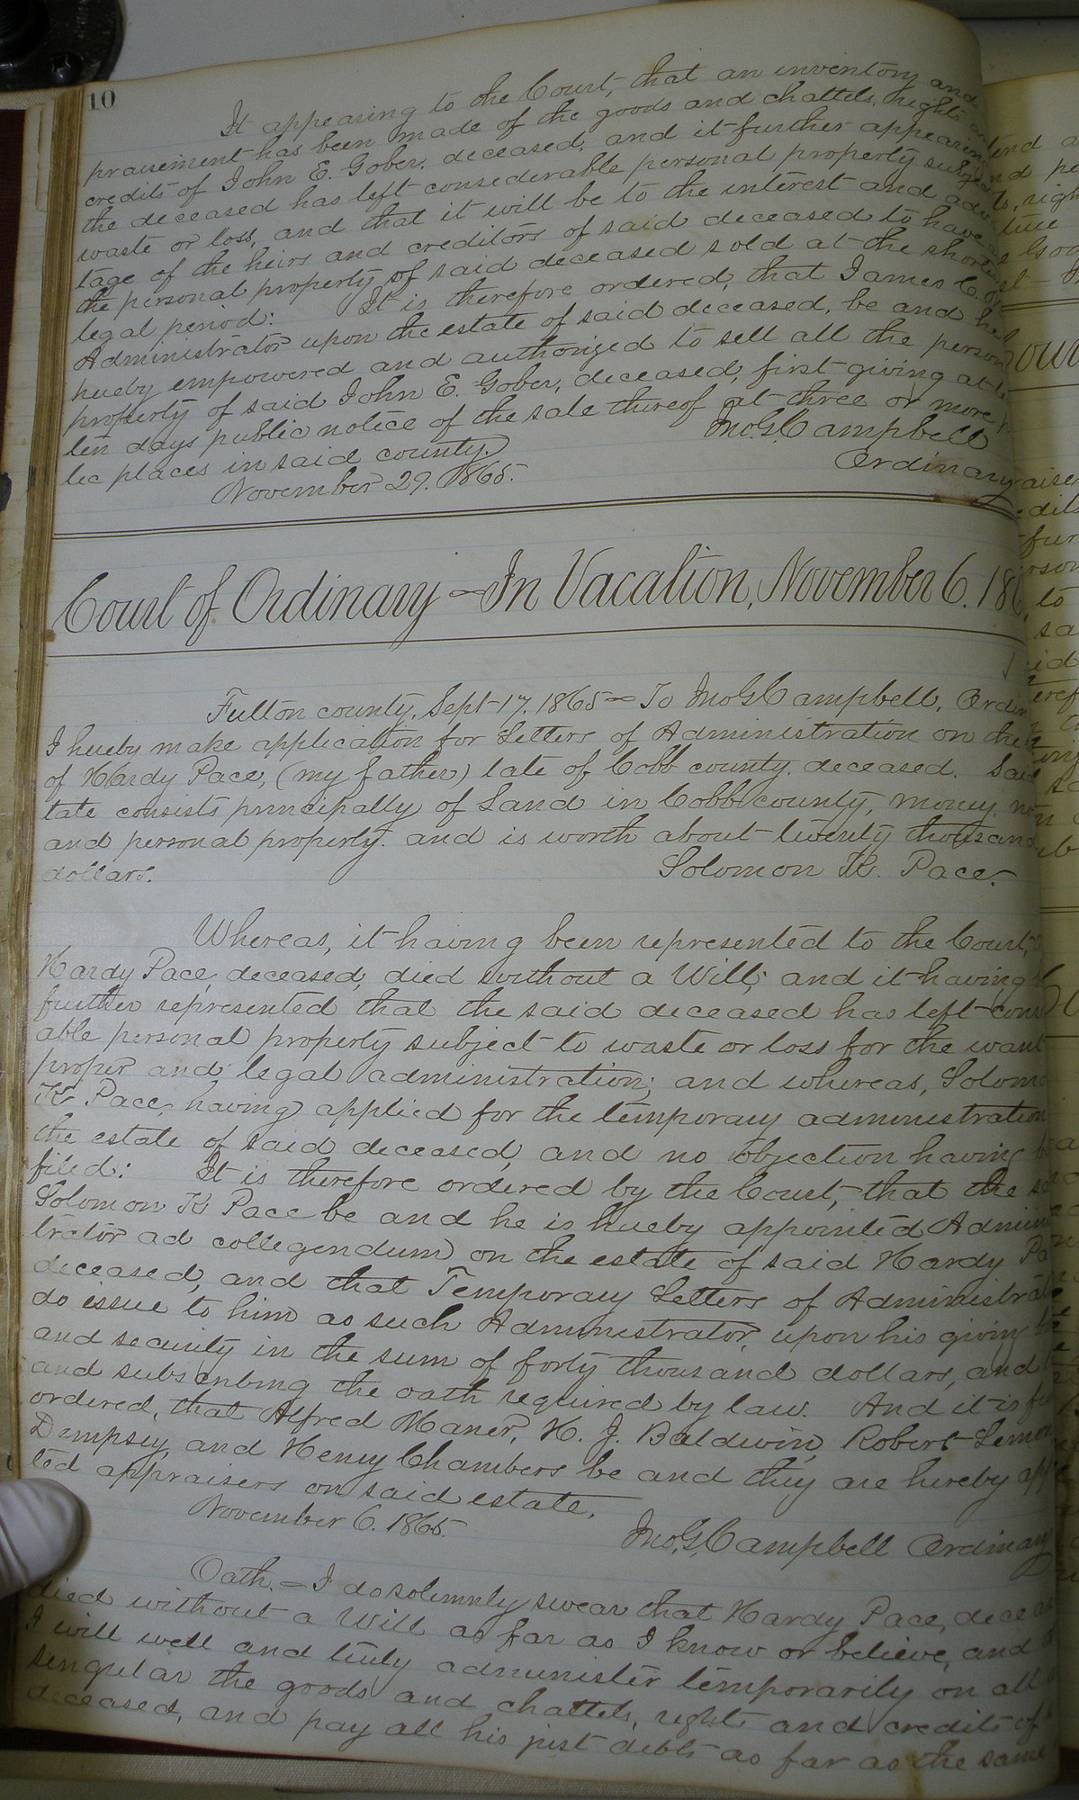 10
It appearing to the Court, that an inventory and
praisement has been made of the goods and chattels, rights and
credits of John E. Gober, deceased, and it further appearing
the deceased has left considerable personal property subject
waste or loss, and that it will be to the interest and advan
tage of the heirs and creditors of said deceased to have
the personal property of said deceased sold at the shortest
legal period: It is therefore ordered, that James C.
Administrator upon the estate of said deceased, be and he is
hereby empowered and authorized to sell all the personal
property of said John E. Gober, deceased, first giving at
ten days public notice of the sale thereof at three or more
lic places in said county.
November 29. 1865. Jno. G. Campbell
Ordinary
Court of Ordinary - In Vacation, November 6. 186
Fulton county, Sept 17, 1865 - To Jno G Campbell, Ordin
I hereby make application for Letters of Administration on the
of Hardy Pace, (my father) late of Cobb county. deceased. Said
tate consists principally of Land in Cobb county, money, no
and personal property. and is worth about twenty thousand
dollars. Solomon K. Pace.
Whereas, it having been represented to the Court,
Hardy Pace, deceased, died without a Will; and it having
further represented that the said deceased has left cons
able personal property subject to waste or loss for the want
proper and legal administration; and whereas, Solomo
K Pace, having applied for the temporary administration
the estate of said deceased, and no objection having b
filed: It is therefore ordered by the Court, that the sa
Solomon K Pace be and he is hereby appointed Admin
trator ad collegendum on the estate of said Hardy Pa
deceased, and that Temporary Letters of Administrat
do issue to him as such Administrator, upon his giving
and security in the sum of forty thousand dollars, and
and subscribing the oath required by law. And it is fu
ordered, that Alfred Maner, H. J. Baldwin, Robert Lemon
Dempsey, and Henry Chambers be and they are hereby app
ted appraisers on said estate.
November 6. 1865. Jno. G. Campbell Ordinary
Oath. - I do solemnly swear that Hardy Pace, decea
died without a Will as far as I know or believe, and
I will well and truly administer temporarily on all
singular the goods and chattels, rights and credits of
deceased, and pay all his just debts as far as the same